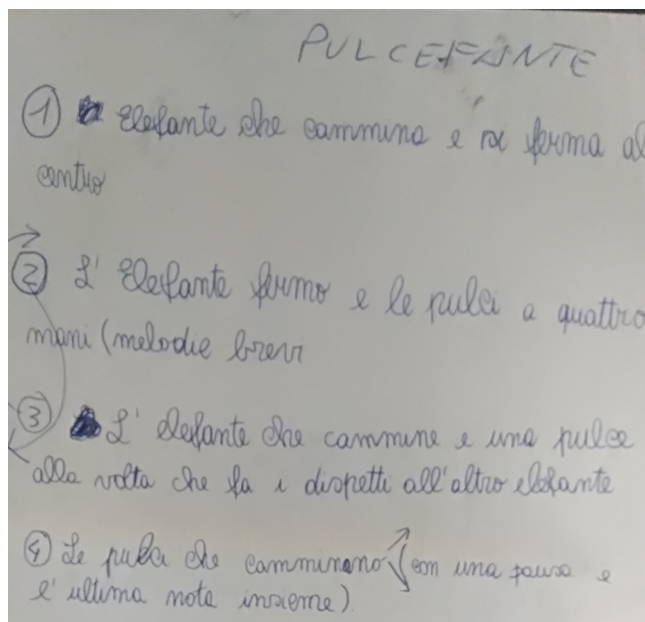 PULCEFANTE
① Elefante che cammina e si ferma al
centro
② L' Elefante fermo e le pulci a quattro
mani (melodie brevi
③ L' elefante che cammine e una pulce
alla volta che fa i dispetti all'altro elefante
④ Le pulci che camminano (con una pausa e
l'ultima nota insieme)